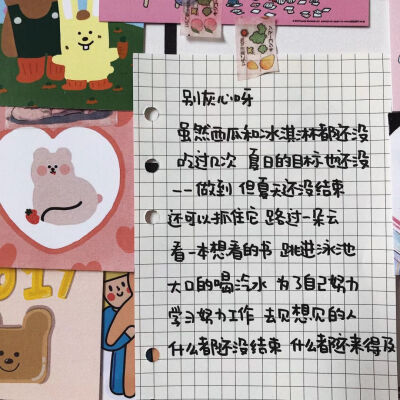 别灰心呀
虽然西瓜和冰淇淋都还没
吃过几次 夏日的目标也还没
一一做到 但夏天还没结束
还可以抓住它 路过一朵云
看一本想看的书 跳进泳池
大口的喝汽水 为了自己努力
学习努力工作 去见想见的人
什么都还没结束 什么都还来得及